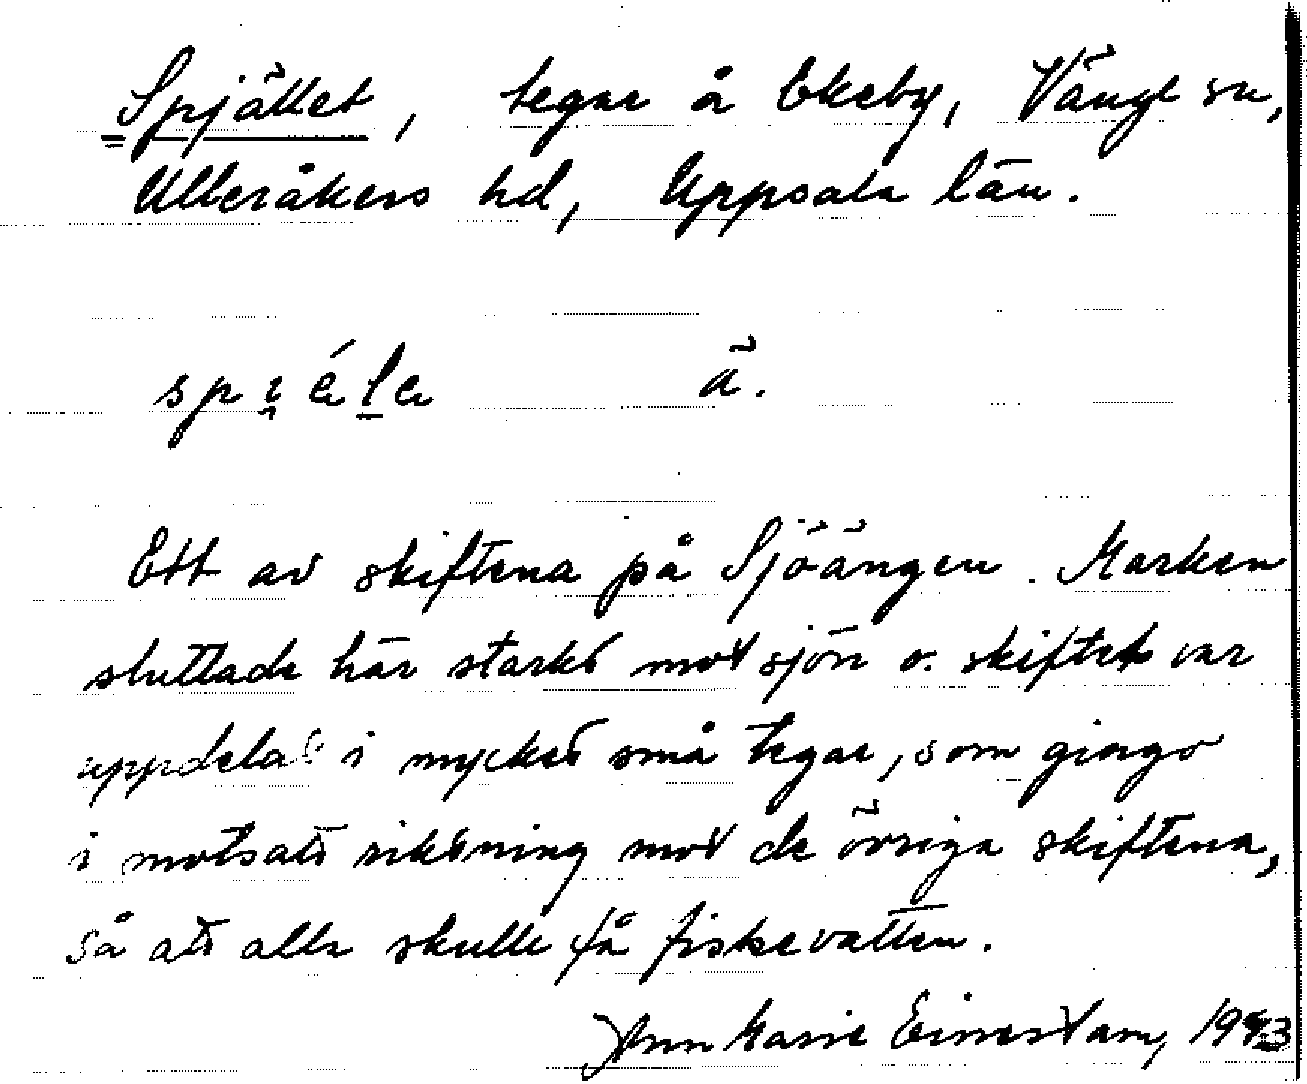 Spjället, tegar å Ekeby, Vänge sn,
Ulleråkers hd, Uppsala län.
ä.
Ett av skiftena på Sjöängen. Marken
sluttade här starkt mot sjön o. skiftet var
uppdelat i mycket små tegar, som gingo
i motsatt riktning mot de övriga skiftena,
så att alla skulle få fiskevatten.
Ann Marie 19